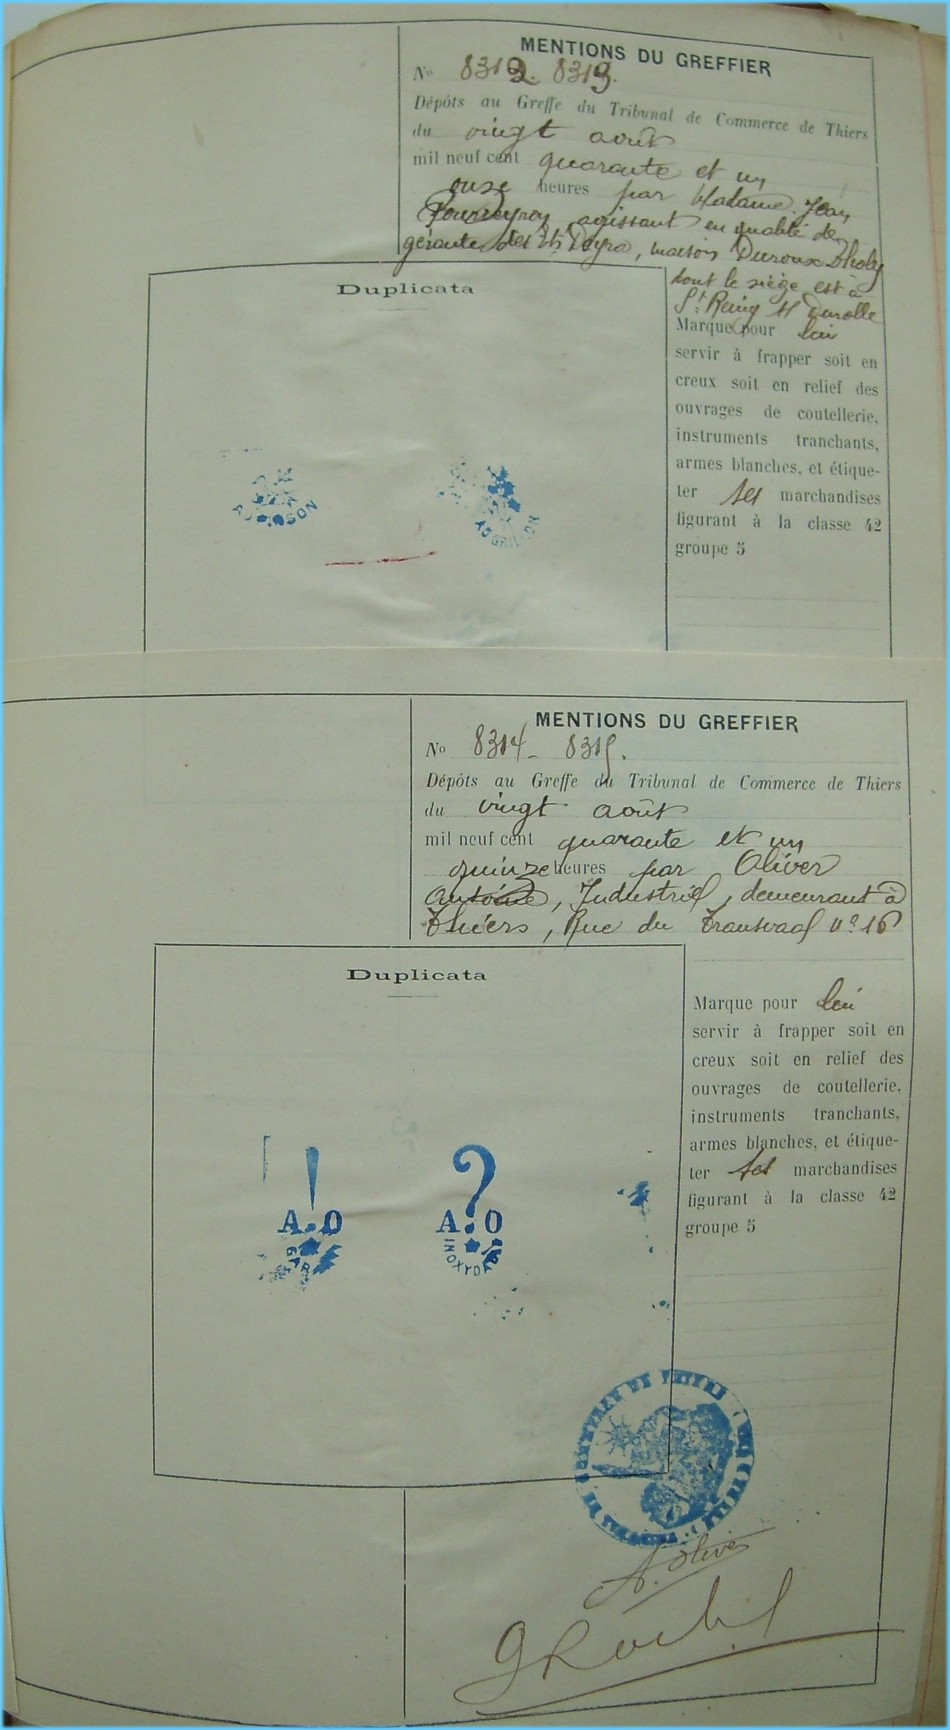 MENTIONS DU GREFFIER
No 8312. 8313.
Dépôts au Greffe du Tribunal de Commerce de Thiers
du vingt août
mil neuf cent quarante et un
onze heures par Madame Jean
agissant en qualité de
gérante des Ets Deyra, maison Duroux Dholy
dont le siège est à
St Remy s/ Durolle
Duplicata
Marque pour lui
servir à frapper soit en
creux soit en relief des
ouvrages de coutellerie,
instruments tranchants,
armes blanches, et étique-
ter ses marchandises
figurant à la classe 42
groupe 5
ROBINSON
AU GRILLON
MENTIONS DU GREFFIER
No 8314 - 8315.
Dépôts au Greffe du Tribunal de Commerce de Thiers
du vingt août
mil neuf cent quarante et un
quinze heures par Oliver
Antoine, Industriel, demeurant à
Thiers, Rue du Transvaal n° 16
Duplicata
Marque pour lui
servir à frapper soit en
creux soit en relief des
ouvrages de coutellerie,
instruments tranchants,
armes blanches, et étique-
ter ses marchandises
figurant à la classe 42
groupe 5
! ?
A.O A.O
GAR INOXYDA
A. Oliver